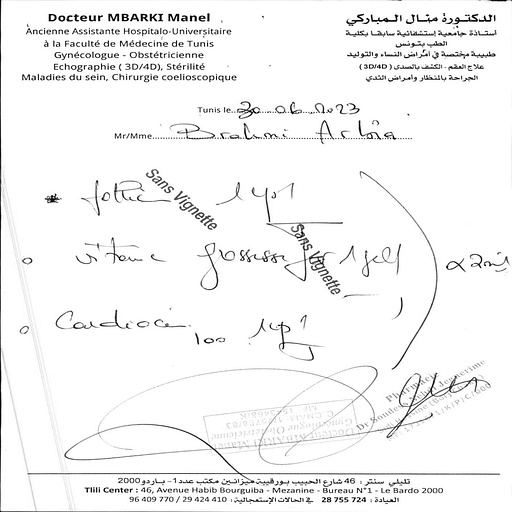 Docteur MBARKI Manel
Ancienne Assistante Hospitalo-Universitaire
à la Faculté de Médecine de Tunis
Gynécologue - Obstétricienne
Echographie ( 3D/4D), Stérilité
Maladies du sein, Chirurgie coelioscopique
الدكتورة منال المباركي
أستاذة جامعية إستشفائية سابقا بكلية
الطب بتونس
طبيبة مختصة في أمراض النساء والتوليد
علاج العقم - الكشف بالصدى ( 3D/4D )
الجراحة بالمنظار وأمراض الثدي
Tunis le 30 06 2023
Mr/Mme Brahmi Arbia
1 cp/j
Sans Vignette
vitamine grossesse 1 gel/j
Sans Vignette
Cardioce 100 1 cp/j
Pharmacie
تليلي سنتر : 46 شارع الحبيب بورقيبة ميزانين مكتب عدد 1 - باردو 2000
Tlili Center : 46, Avenue Habib Bourguiba - Mezanine - Bureau N°1 - Le Bardo 2000
العيادة : 28 755 724 في الحالات الإستعجالية : 96 409 770 / 29 424 410